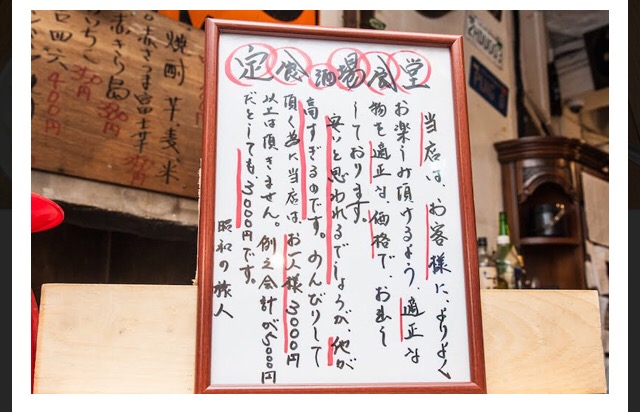 定食酒場食堂
当店は、お客様に、よりよく
お楽しみ頂けるよう、適正な
物を適正な、価格で、お出し
しております。
安いと思われるでしょうが、他が
高すぎるのです。のんびりして
頂く為に当店は、お一人様3000円
以上は頂きません。例え会計が5000円
だとしても、3000円です。
昭和の旅人
焼酎 芋麦米